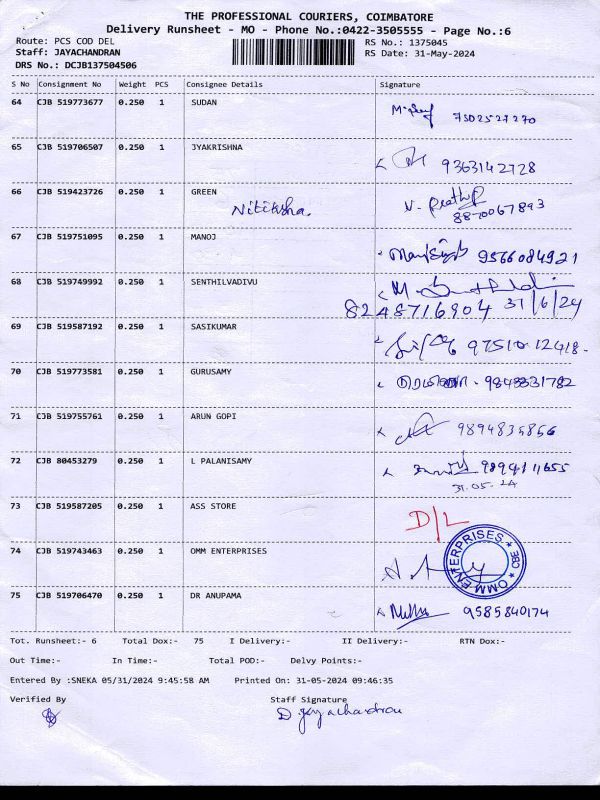 THE PROFESSIONAL COURIERS, COIMBATORE
Delivery Runsheet - MO - Phone No.:0422-3505555 - Page No.:6
Route: PCS COD DEL RS No.: 1375045
Staff: JAYACHANDRAN RS Date: 31-May-2024
DRS No.: DCJB137504506
S No Consignment No Weight PCS Consignee Details Signature
64 CJB 519773677 0.250 1 SUDAN 7502527270
65 CJB 519706507 0.250 1 JYAKRISHNA 9363142728
66 CJB 519423726 0.250 1 GREEN
Nitiksha. 8870067893
67 CJB 519751095 0.250 1 MANOJ 9566084921
68 CJB 519749992 0.250 1 SENTHILVADIVU
8248716904 31/6/24
69 CJB 519587192 0.250 1 SASIKUMAR 97510-12418-
70 CJB 519773581 0.250 1 GURUSAMY
71 CJB 519755761 0.250 1 ARUN GOPI 9894835856
72 CJB 80453279 0.250 1 L PALANISAMY
31.05.24
73 CJB 519587205 0.250 1 ASS STORE D/L
74 CJB 519743463 0.250 1 OMM ENTERPRISES
OMM ENTERPRISES * CBE *
75 CJB 519706470 0.250 1 DR ANUPAMA 9585840174
Tot. Runsheet:- 6 Total Dox:- 75 I Delivery:- II Delivery:- RTN Dox:-
Out Time:- In Time:- Total POD:- Delvy Points:-
Entered By :SNEKA 05/31/2024 9:45:58 AM Printed On: 31-05-2024 09:46:35
Verified By Staff Signature
D Jayachandran